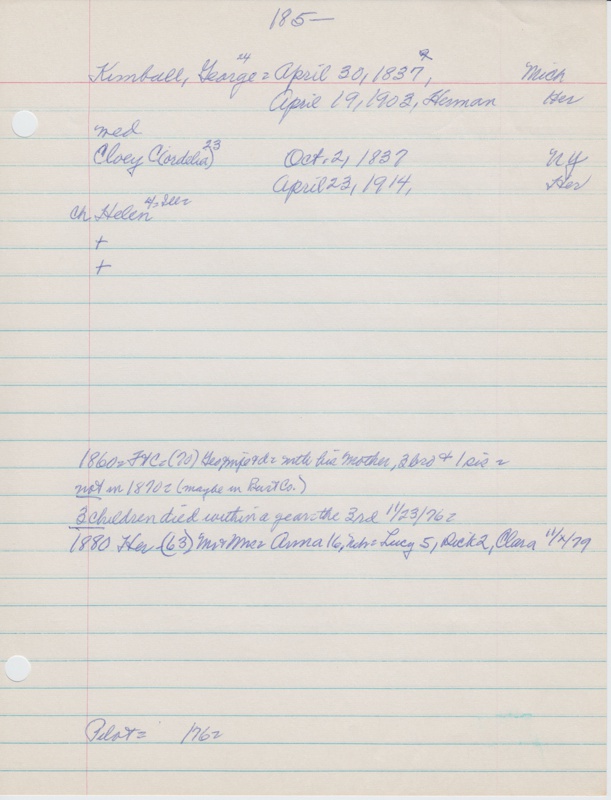 185-
Kimball, George 24 = April 30, 1837?, Mich
April 19, 1902, Herman Her
med
Cloey C(ordelia) 23 Oct. 2, 1837 NY
April 23, 1914, Her
ch Helen
+
+
1860= (70) with his mother, 3 bro + 1 sis =
not in 1870= (maybe in Burt Co.)
3 children died within a year= the 3rd 11/23/76=
1880 Her (63) Mr + Mrs= Anna 16, Lucy 5, Dick 2, Clara 11/ /79
Pilot= /76=